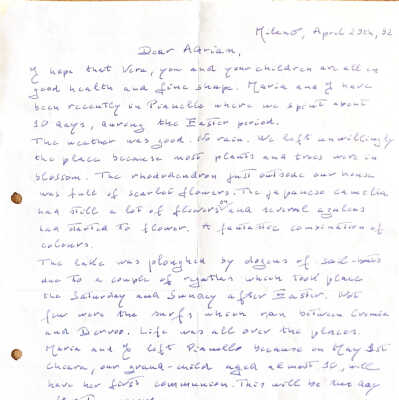 Milano, April 29th, 92
Dear Adrian,
I hope that Vera, you and your children are all in
good health and fine shape. Maria and I have
been recently in Pianello where we spent about
10 days, during the Easter period.
The weather was good. No rain. We left unwillingly
the place because most plants and trees were in
blossom. The rhododendron just outside our house
was full of scarlet flowers. The japanese camelia
had still a lot of flowers on and several azaleas
had started to flower. A fantastic combination of
colours.
The lake was ploughed by dozens of sail-boats
due to a couple of regattas which took place
the Saturday and Sunday after Easter. Not
few were the surfs which ran between Cremia
and Dervio. Life was all over the places.
Maria and I left Pianello because on May 1st
Chiara, our grand-child aged almost 10, will
have her first communion. This will be the day